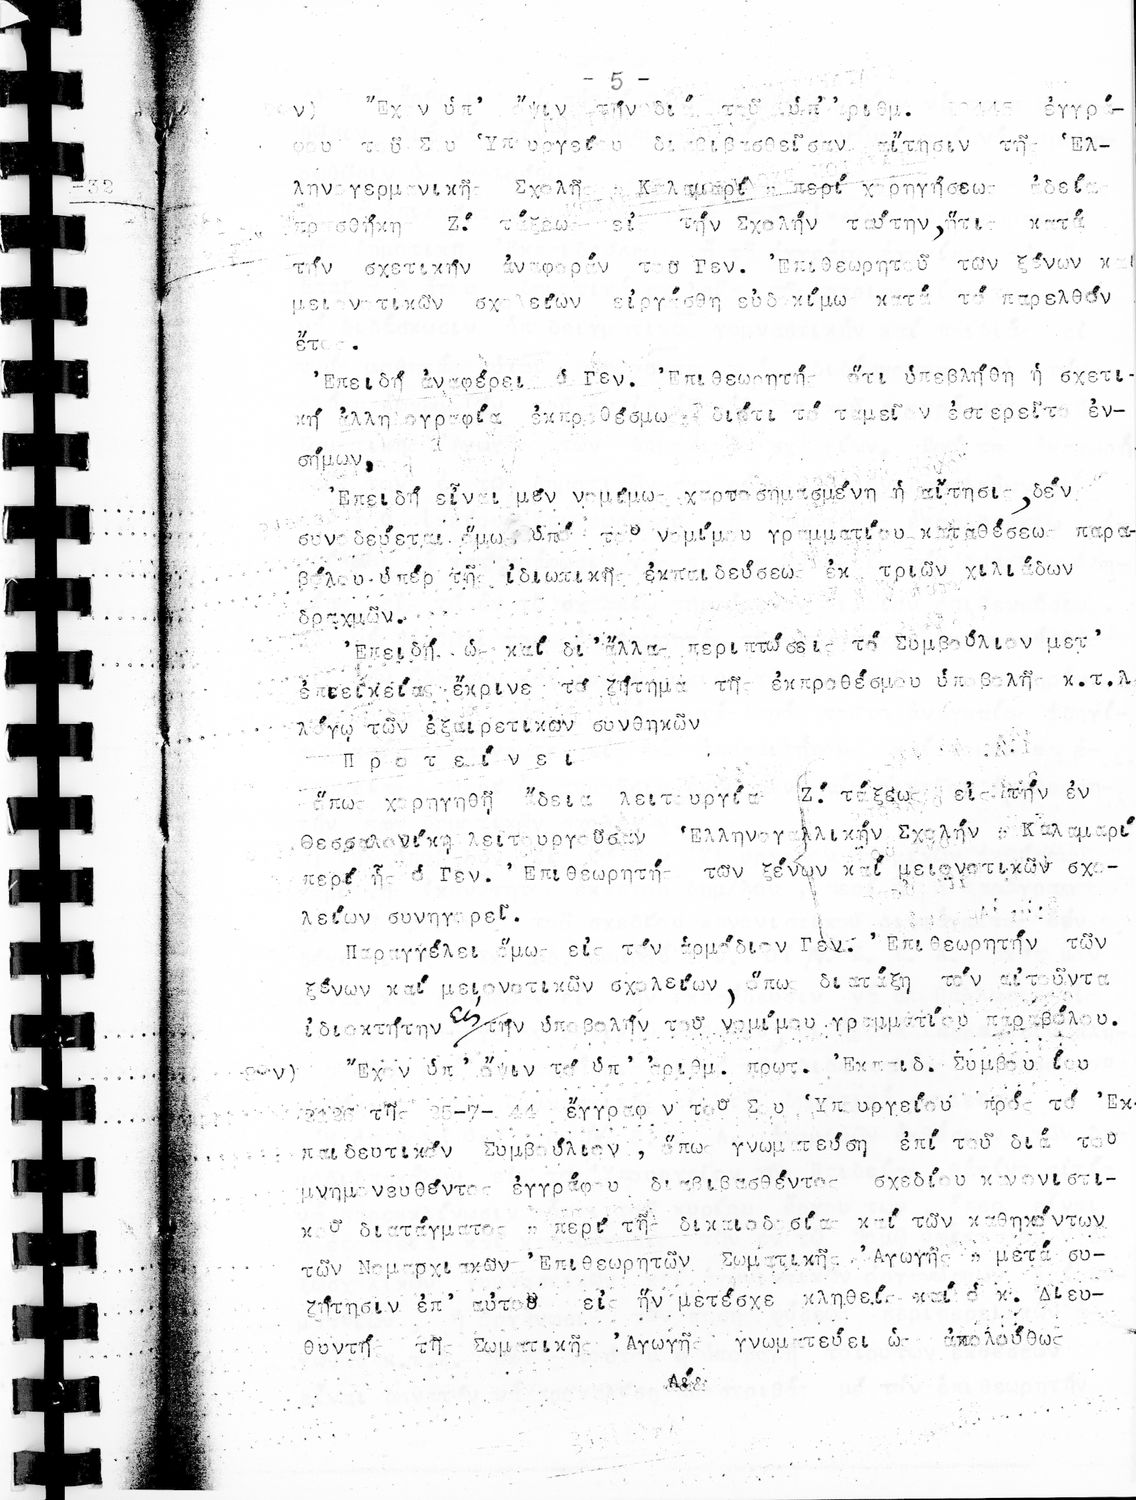 - 5 -
ν) Ἔχον ὑπ' ὄψιν τήν διά τοῦ ὑπ' ἀριθμ. ἐγγρά-
φου τοῦ Σου Ὑπουργείου διαβιβασθεῖσαν αἴτησιν τῆς Ἑλ-
-32
ληνογερμανικῆς Σχολῆς " Καλαμαρί " περί χορηγήσεως ἀδείας
προσθήκης Ζ! τάξεως εἰς τήν Σχολήν ταύτην, ἥτις κατά
τήν σχετικήν ἀναφοράν τοῦ Γεν. Ἐπιθεωρητοῦ τῶν ξένων καί
μειονοτικῶν σχολείων εἰργάσθη εὐδοκίμως κατά τό παρελθόν
ἔτος.
Ἐπειδή ἀναφέρει ὁ Γεν. Ἐπιθεωρητής ὅτι ὑπεβλήθη ἡ σχετι-
κή ἀλληλογραφία ἐκπροθέσμως διότι τό ταμεῖον ἐστερεῖτο ἐν-
σήμων,
Ἐπειδή εἶναι μέν νομίμως χαρτοσημασμένη ἡ αἴτησις, δέν
συνοδεύεται ὅμως ὑπό τοῦ νομίμου γραμματίου καταθέσεως παρα-
βόλου ὑπέρ τῆς ἰδιωτικῆς ἐκπαιδεύσεως ἐκ τριῶν χιλιάδων
δραχμῶν.
Ἐπειδή ὡς καί δι' ἄλλας περιπτώσεις τό Συμβούλιον μετ'
ἐπιεικείας ἔκρινε τό ζήτημα τῆς ἐκπροθέσμου ὑποβολῆς κ.τ.λ.
λόγῳ τῶν ἐξαιρετικῶν συνθηκῶν
Π ρ ο τ ε ί ν ε ι
ὅπως χορηγηθῇ ἄδεια λειτουργίας Ζ! τάξεως εἰς τήν ἐν
Θεσσαλονίκῃ λειτουργοῦσαν Ἑλληνογαλλικήν Σχολήν " Καλαμαρί
περί ἧς ὁ Γεν. Ἐπιθεωρητής τῶν ξένων καί μειονοτικῶν σχο-
λείων συνηγορεῖ.
Παραγγέλει ὅμως εἰς τόν ἁρμόδιον Γεν. Ἐπιθεωρητήν τῶν
ξένων καί μειονοτικῶν σχολείων, ὅπως διατάξῃ τόν αἰτοῦντα
ἰδιοκτήτην εἰς τήν ὑποβολήν τοῦ νομίμου γραμματίου παραβόλου.
ν) Ἔχον ὑπ' ὄψιν τό ὑπ' ἀριθμ. πρωτ. Ἐκπαιδ. Συμβουλίου
τῆς 25-7-44 ἔγγραφον τοῦ Σου Ὑπουργείου πρός τό Ἐκ-
παιδευτικόν Συμβούλιον, ὅπως γνωματεύσῃ ἐπί τοῦ διά τοῦ
μνημονευθέντος ἐγγράφου διαβιβασθέντος σχεδίου κανονιστι-
κοῦ διατάγματος " περί τῆς δικαιοδοσίας καί τῶν καθηκόντων
τῶν Νομαρχιακῶν Ἐπιθεωρητῶν Σωματικῆς Ἀγωγῆς " μετά συ-
ζήτησιν ἐπ' αὐτοῦ εἰς ἥν μετέσχε κληθείς καί ὁ κ. Διευ-
θυντής τῆς Σωματικῆς Ἀγωγῆς γνωματεύει ὡς ἀκολούθως